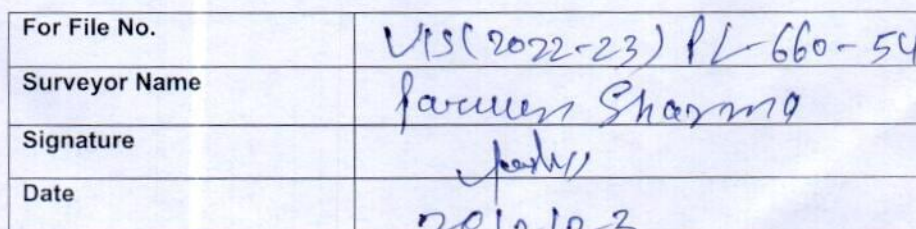 For File No. VIS(2022-23) PL-660-54
Surveyor Name Parveen Sharma
Signature
Date